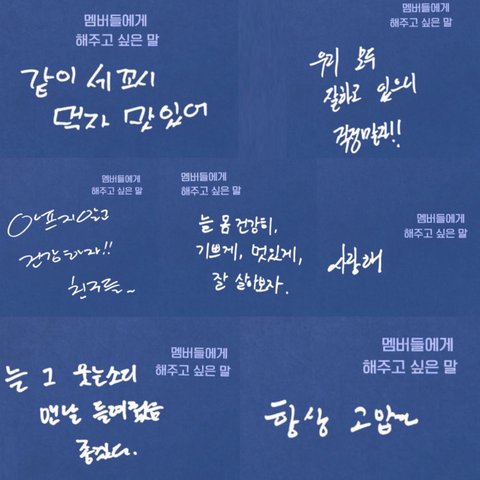 멤버들에게
해주고 싶은 말
같이 세꼬시
먹자 맛있어
멤버들에게
해주고 싶은 말
우리 모두
잘하고 있으니
걱정말라!!
멤버들에게
해주고 싶은 말
아프지말고
건강하자!!
친구들~
멤버들에게
해주고 싶은 말
늘 몸 건강히,
기쁘게, 멋있게,
잘 살아보자.
멤버들에게
해주고 싶은 말
사랑해
멤버들에게
해주고 싶은 말
늘 그 웃는소리
맨날 들려줬음
좋겠다.
멤버들에게
해주고 싶은 말
항상 고맙다